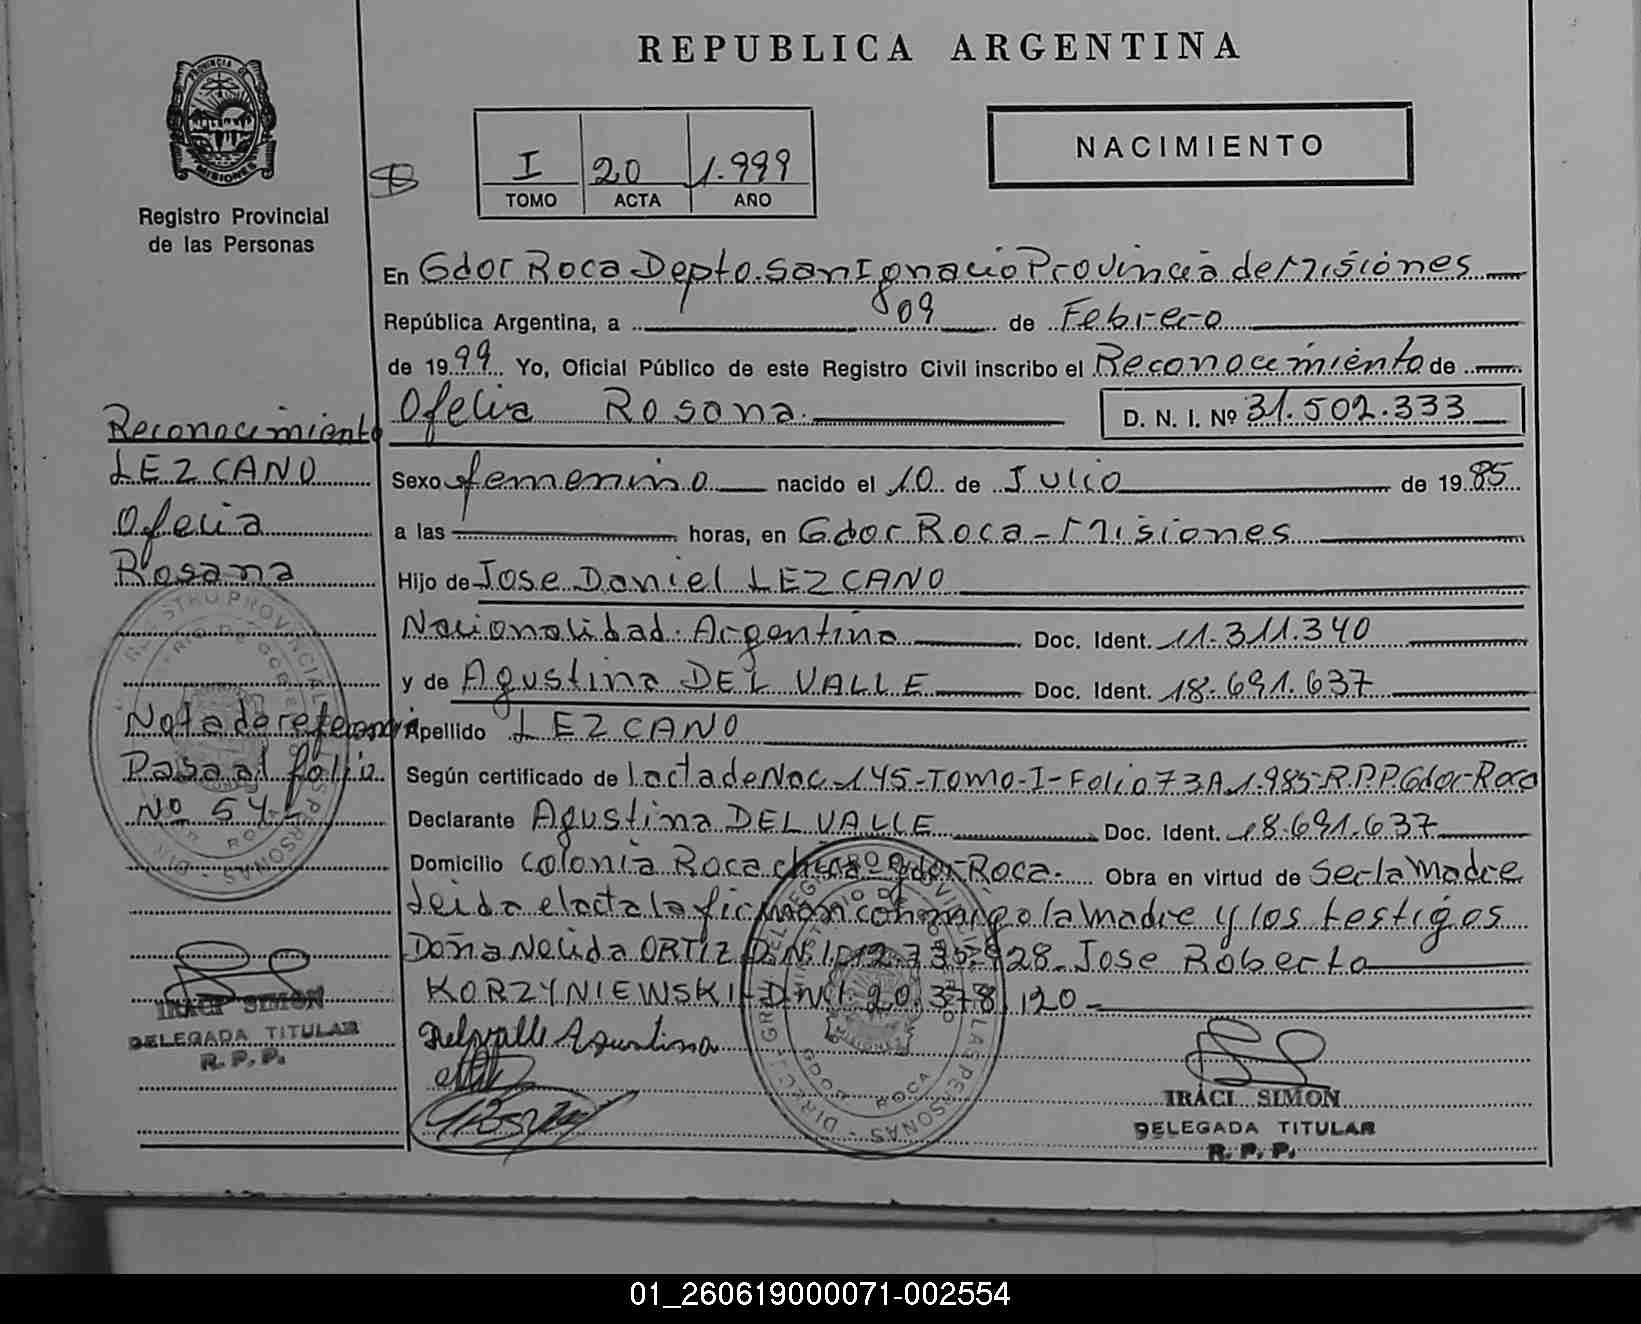 REPUBLICA ARGENTINA
PROVINCIA DE
MISIONES
Registro Provincial
de las Personas
I 20 1.999
TOMO ACTA AÑO
NACIMIENTO
En Gdor Roca Depto. San Ignacio Provincia de Misiones
República Argentina, a 09 de Febrero
de 1999 Yo, Oficial Público de este Registro Civil inscribo el Reconocimiento de
Ofelia Rosana D. N. I. Nº 31.502.333
Sexo femenino nacido el 10 de Julio de 1985
a las horas, en Gdor Roca - Misiones
Hijo de Jose Daniel LEZCANO
Nacionalidad Argentina Doc. Ident. 11.311.340
y de Agustina DEL VALLE Doc. Ident. 18.691.637
Apellido LEZCANO
Según certificado de lacta de Nac-145-Tomo-I-Folio 73 A 1.985-R.P.P. Gdor-Roca
Declarante Agustina DEL VALLE Doc. Ident. 18.691.637
Domicilio Colonia Roca Gdor-Roca. Obra en virtud de Ser la Madre
leida el acta la firman conmigo la madre y los testigos
Doña Nelida ORTIZ D.N.I. Jose Roberto
KORZYNIEWSKI-DNI 20.378.120-
Delvalle Agustina
IRACI SIMON
DELEGADA TITULAR
R. P. P.
Reconocimiento
LEZCANO
Ofelia
Rosana
Nota de referencia
Pasa al folio
Nº 54-
IRACI SIMON
DELEGADA TITULAR
R. P. P.
01_260619000071-002554